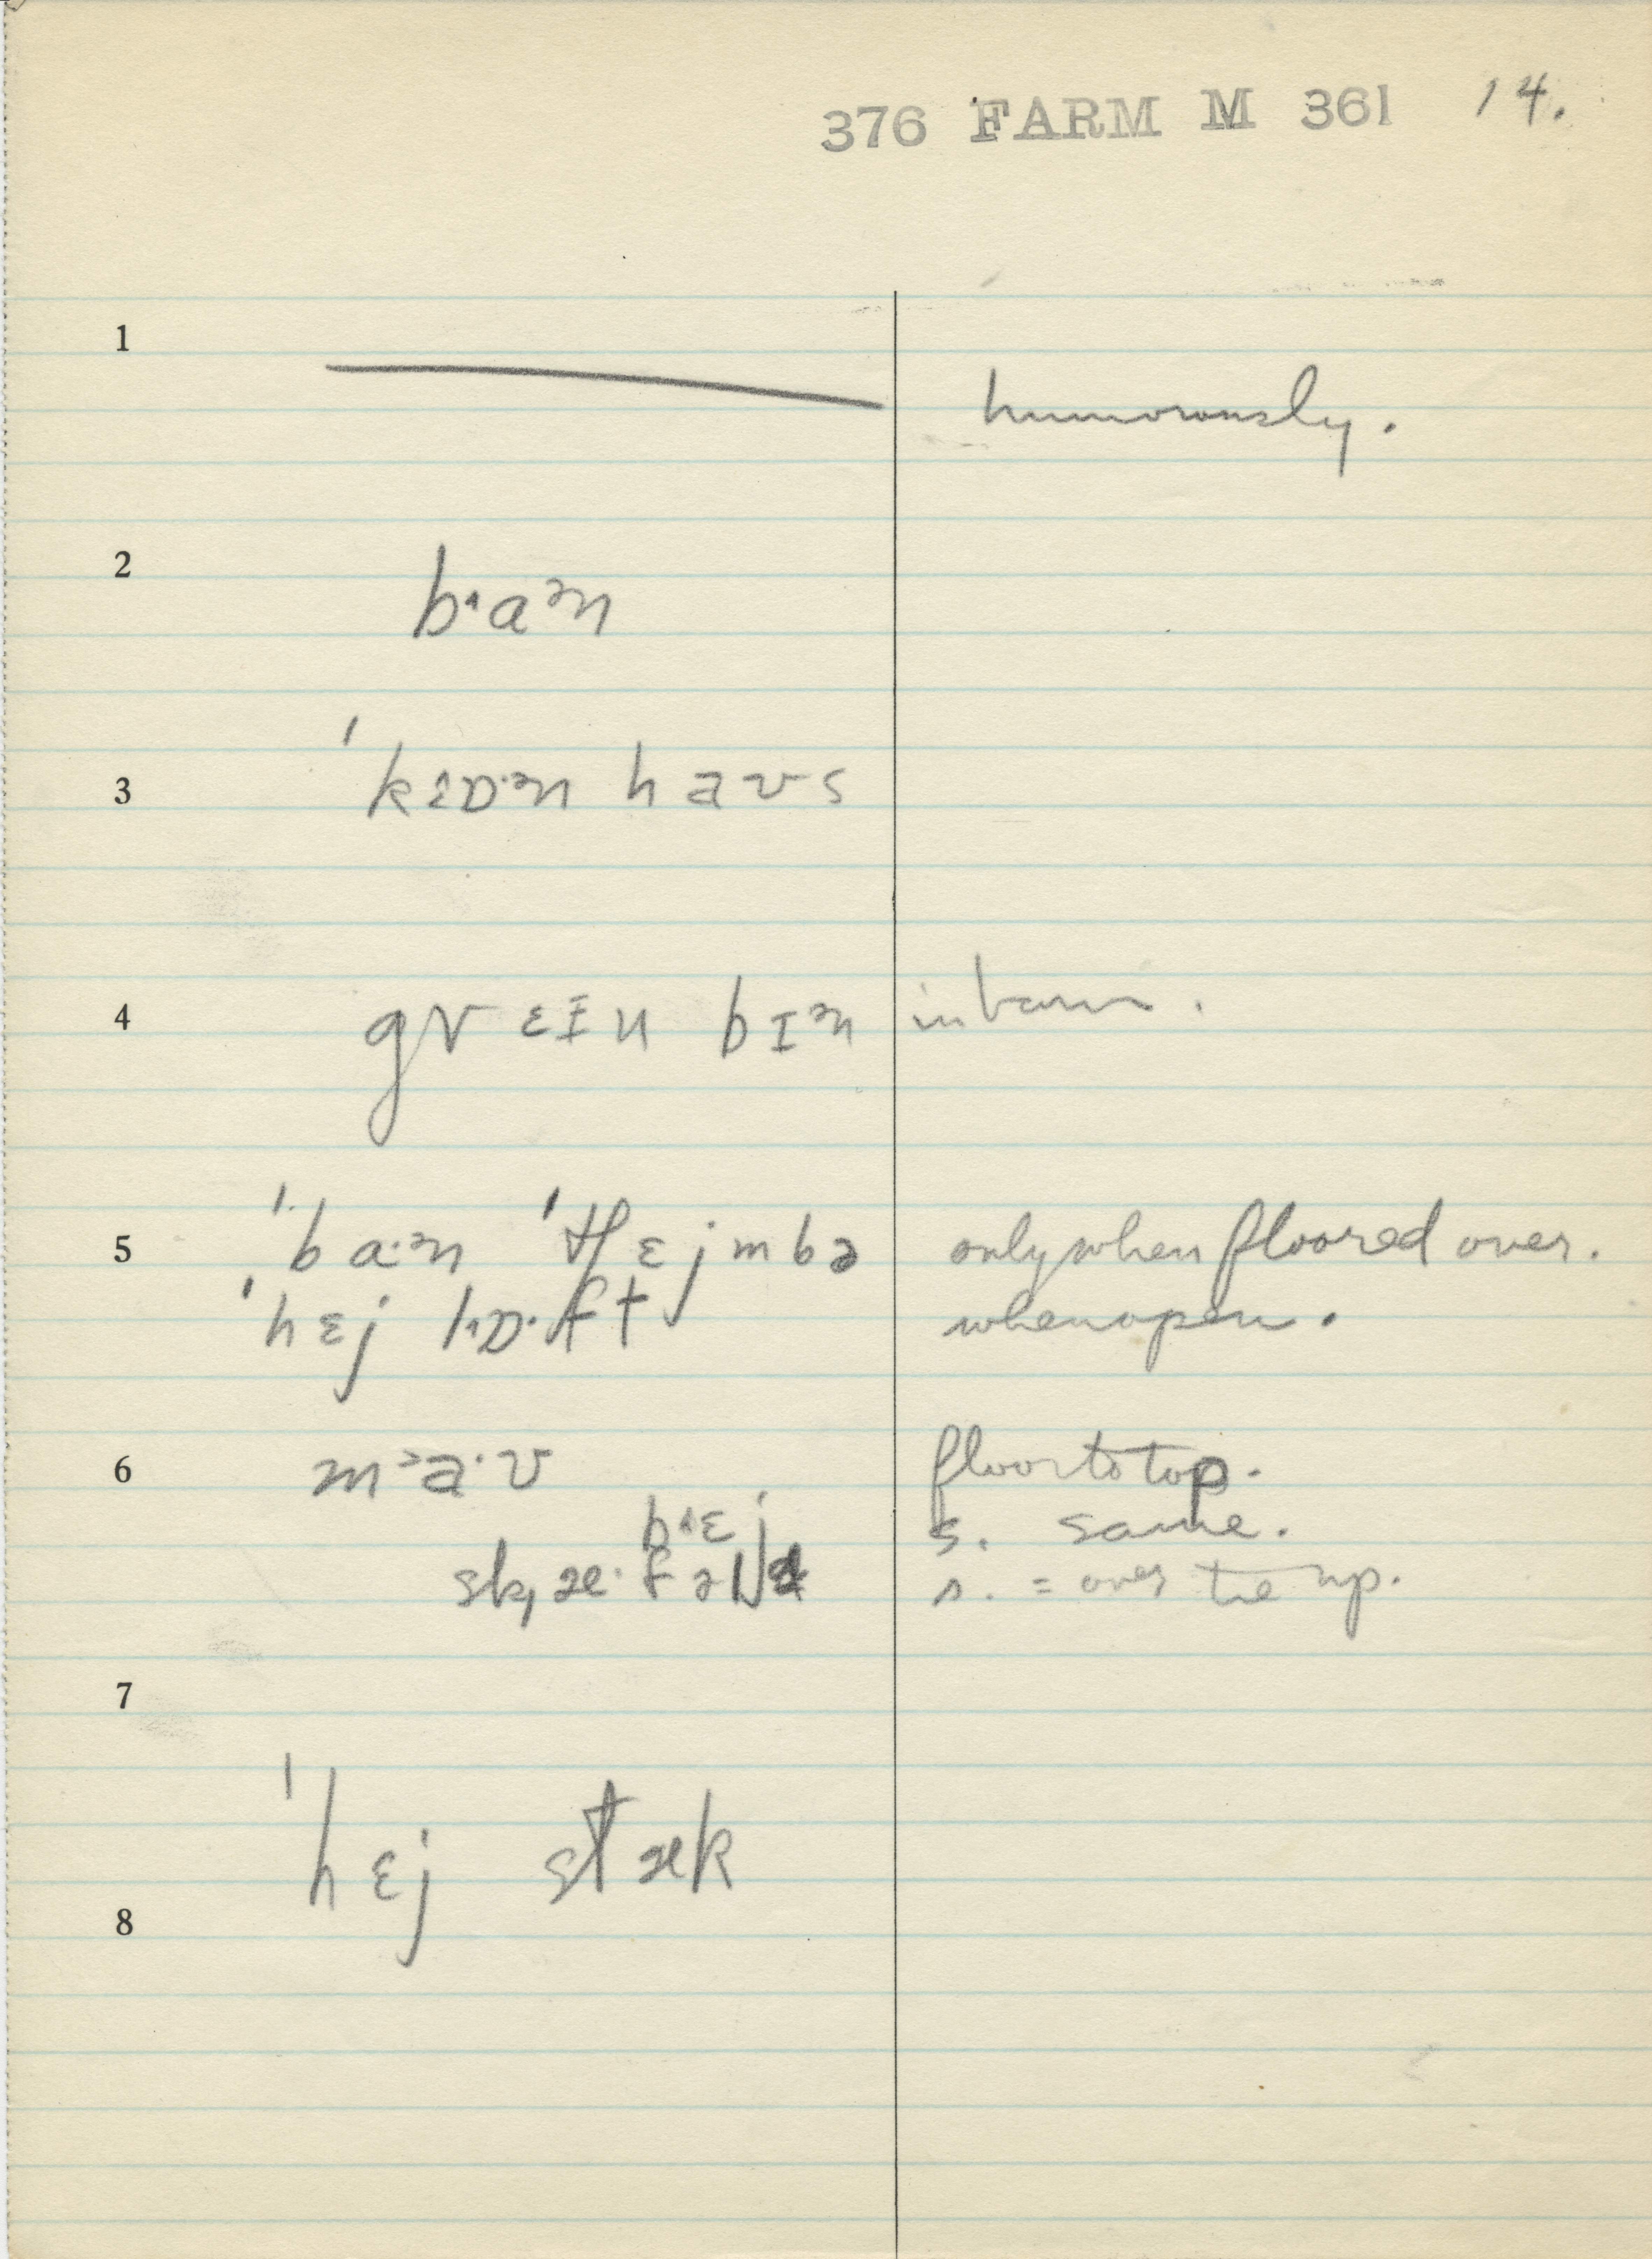 376 FARM M 361 14.
1
humorously.
2 bˑaᵊn
3 ˈkɛɒˑᵊn haʊs
4 gr ɛɪn bɪᵊn in barn.
5 ˈbaˑᵊn ˈtʃɛjmbə only when floored over.
ˈhɛj lɒˑft when open.
6 m aˑʊ floor to top.
bˑɛj s. same.
skæˑfəl s. = over tie up.
7
ˈhɛj stæk
8